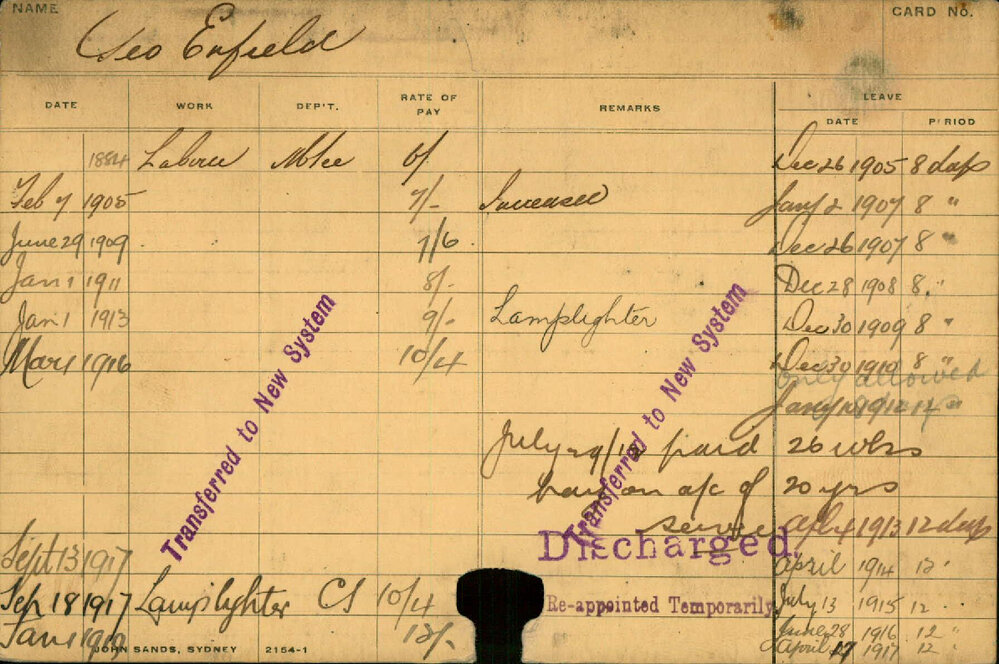 NAME CARD No.
Geo Enfield
DATE WORK DEP'T. RATE OF PAY REMARKS LEAVE
DATE PERIOD
1884 6/ Dec 26 1905 8 days
Feb 7 1905 7/- Increased Jany 2 1907 8 "
June 29 1909 7/6 Dec 26 1907 8 "
Jan 1 1911 8/- Dec 28 1908 8 "
Jan 1 1913 9/- Lamplighter Dec 30 1909 8 "
Mar 1 1916 10/4 Dec 30 1910 8 "
only allowed
Jany 1912 "
July paid 26 wks
pay on a/c of 20 yrs
service Apl 4 1913 12 days
Transferred to New System
Transferred to New System
Discharged.
Sept 13 1917 April 1914 12 "
Sep 18 1917 Lamplighter CS 10/4 Re-appointed Temporarily July 13 1915 12 "
Jan 1 12/- June 28 1916 12 "
April 17 1917 12 "
JOHN SANDS, SYDNEY 2154-1